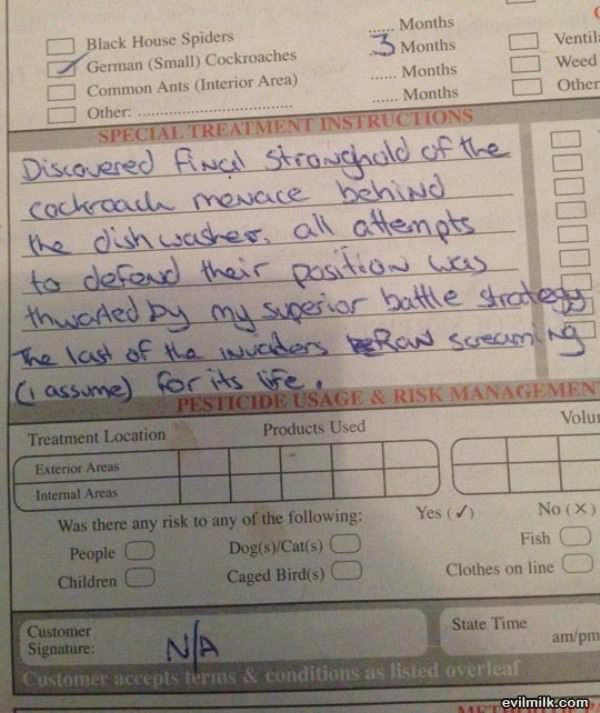 ...... Months
Black House Spiders
3 Months
German (Small) Cockroaches
Ventil
...... Months
Common Ants (Interior Area)
Weed
...... Months
Other: ..................................
Other
SPECIAL TREATMENT INSTRUCTIONS
Discovered final stronghold of the
cockroach menace behind
the dishwasher, all attempts
to defend their position was
thwarted by my superior battle strategy
The last of the invaders Ran screaming
(i assume) for its life.
PESTICIDE USAGE & RISK MANAGEMEN
Treatment Location
Products Used
Volu
Exterior Areas
Internal Areas
Was there any risk to any of the following:
Yes (✓)
No (✕)
People
Dog(s)/Cat(s)
Fish
Children
Caged Bird(s)
Clothes on line
Customer
Signature:
N/A
State Time
am/pm
Customer accepts terms & conditions as listed overleaf
evilmilk.com